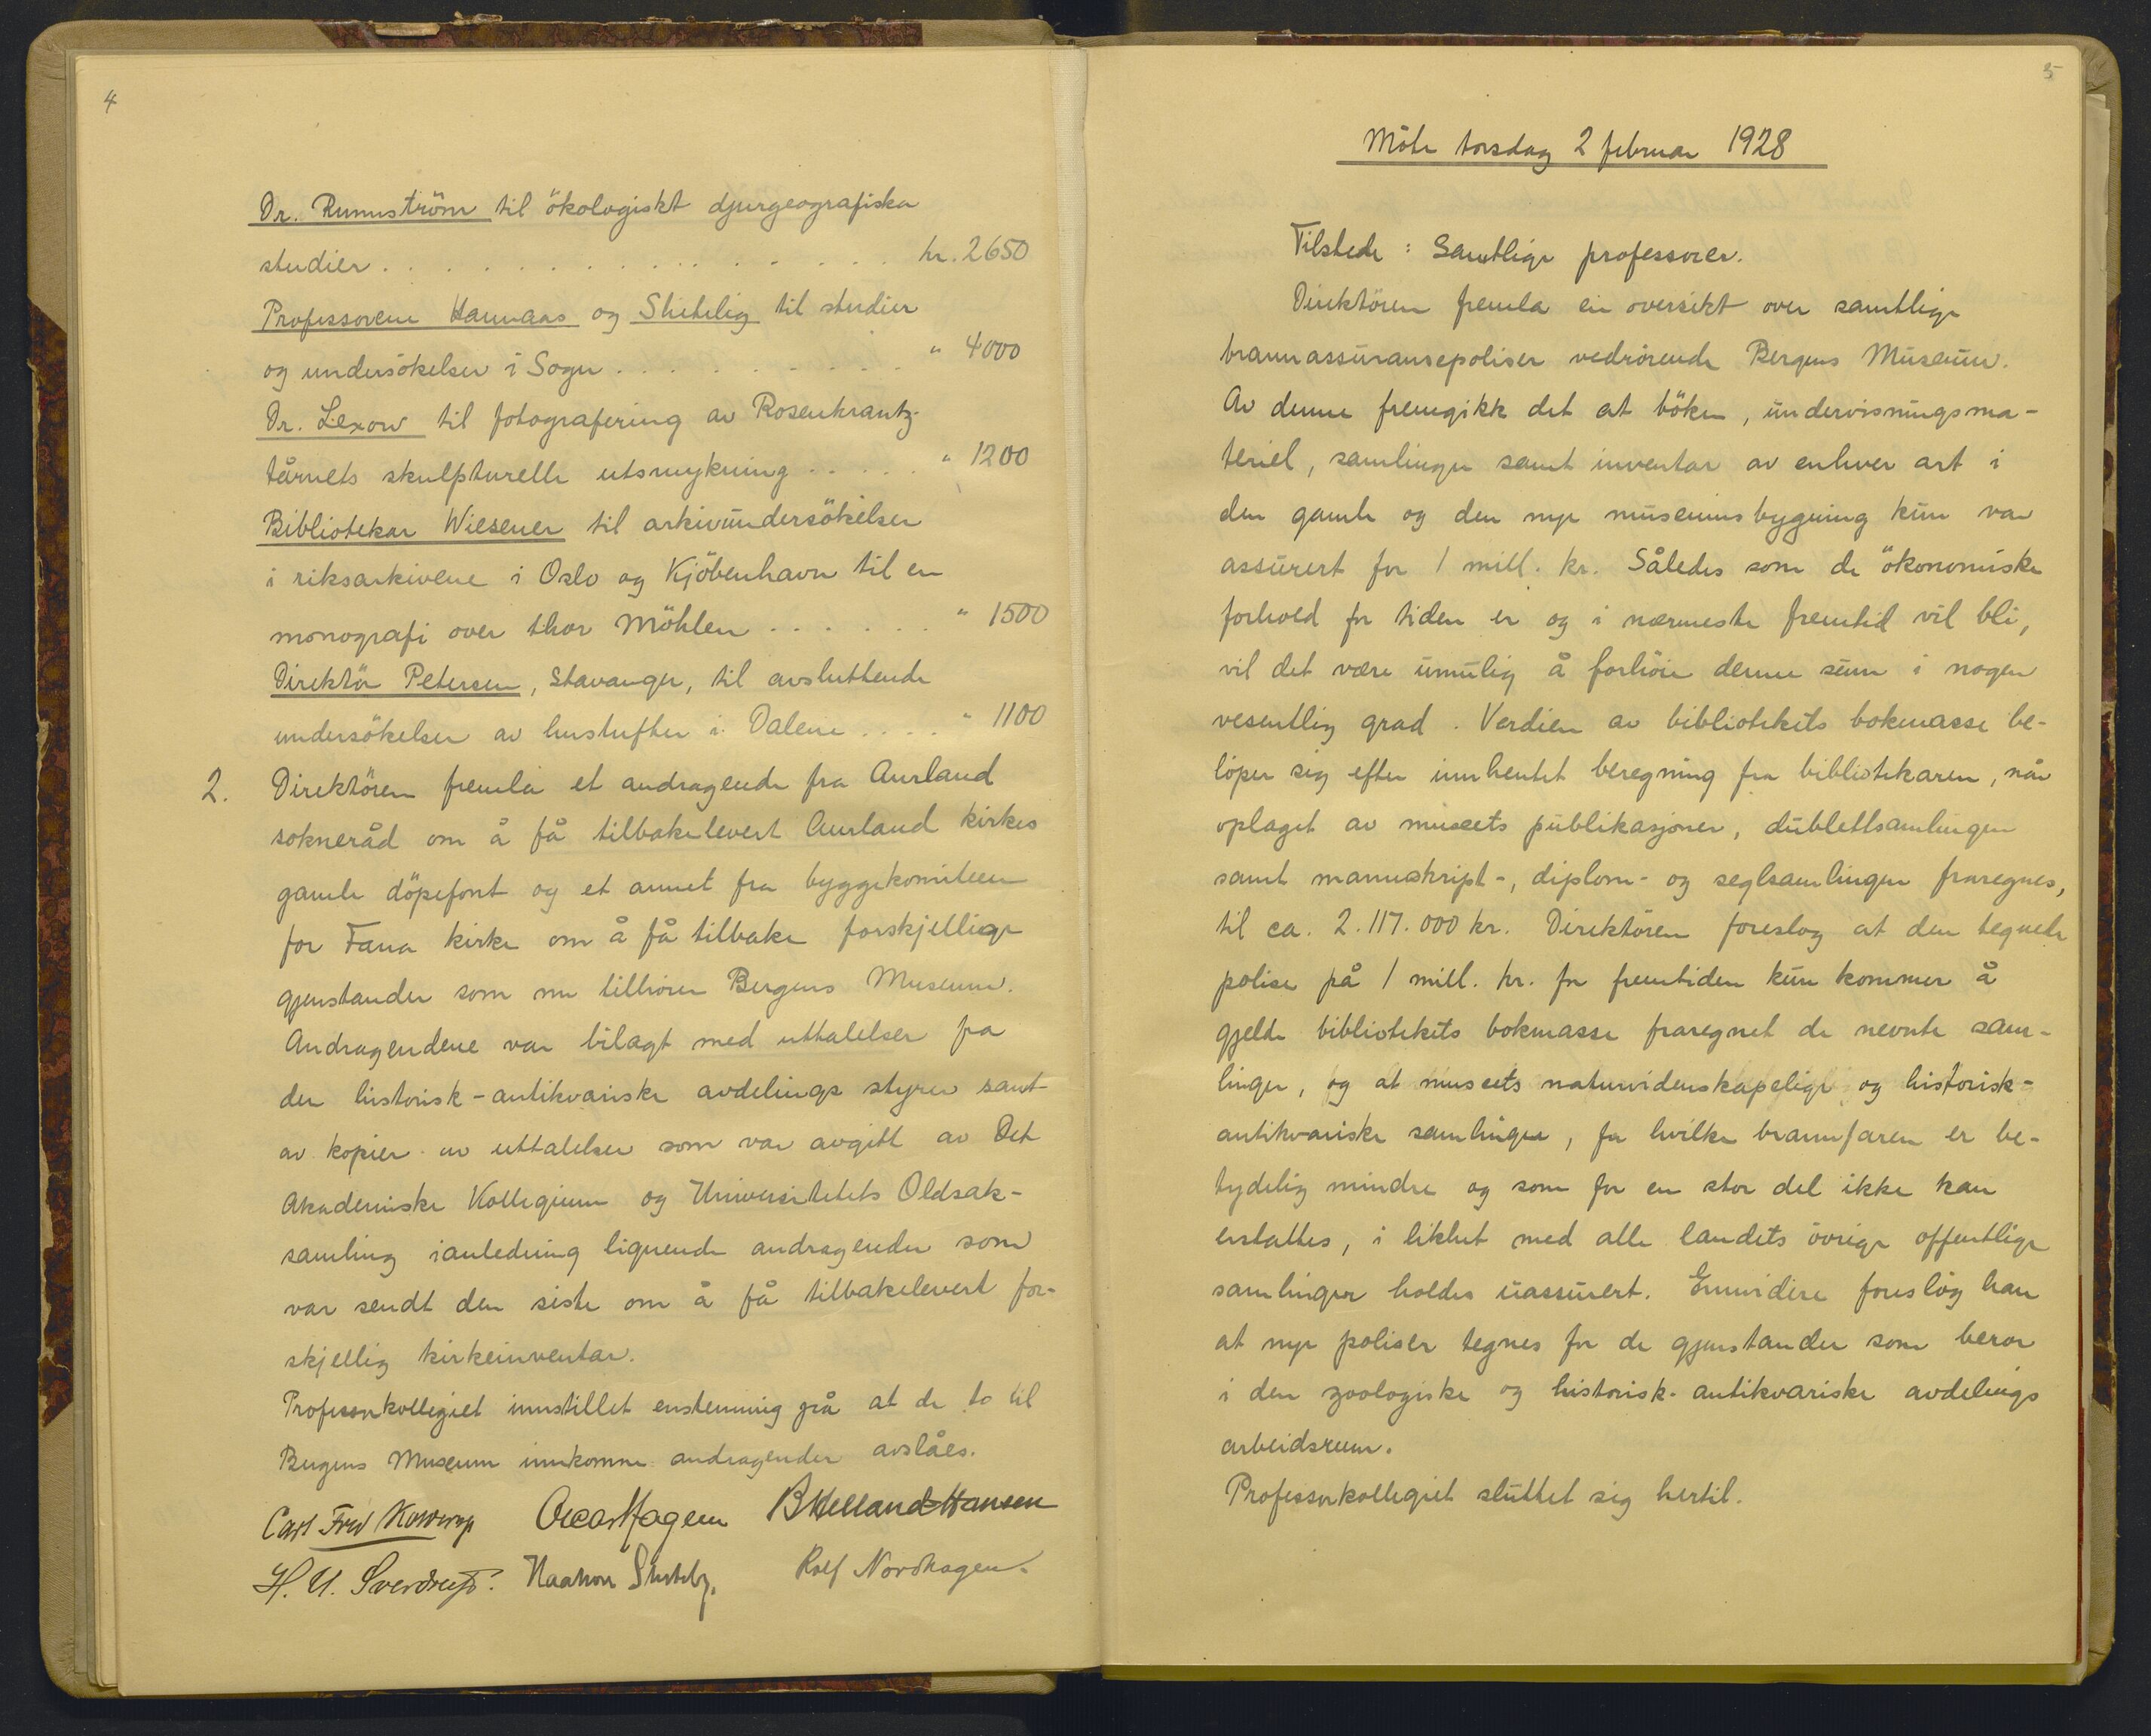 4
Dr. Runnström til ökologiskt djurgeografiska
studier . . . . . . . . . . . . . . . . . . kr. 2650
Professorene Hannaas og Shetelig til studier
og undersökelser i Sogn . . . . . . . . . . " 4000
Dr. Lexow til fotografering av Rosenkrantz-
tårnets skulpturelle utsmykning . . . . . " 1200
Bibliotekar Wiesener til arkivundersökelser
i riksarkivene i Oslo og Kjöbenhavn til en
monografi over thor Möhlen . . . . . . " 1500
Direktör Petersen, Stavanger, til avsluttende
undersökelser av hustufter i Dalene . . . . " 1100
2. Direktören fremla et andragende fra Aurland
sokneråd om å få tilbakelevert Aurland kirkes
gamle döpefont og et annet fra byggekomiteen
for Fana kirke om å få tilbake forskjellige
gjenstander som nu tilhörer Bergens Museum.
Andragendene var bilagt med uttalelser fra
den historisk-antikvariske avdelings styrer samt
av kopier av uttalelser som var avgitt av Det
Akademiske Kollegium og Universitetets Oldsak-
samling i anledning lignende andragender som
var sendt den siste om å få tilbakelevert for-
skjellig kirkeinventar.
Professorkollegiet innstillet enstemmig på at de to til
Bergens Museum innkomne andragender avslåes.
Carl Fred Kolderup Oscar Hagem B Helland-Hansen
H. U. Sverdrup. Haakon Shetelig. Rolf Nordhagen.
5
Möte torsdag 2 februar 1928
Tilstede: Samtlige professorer.
Direktören fremla en oversikt over samtlige
brannassuransepoliser vedrörende Bergens Museum.
Av denne fremgikk det at böker, undervisningsma-
teriel, samlinger samt inventar av enhver art i
den gamle og den nye museumsbygning kun var
assurert for 1 mill. kr. Således som de ökonomiske
forhold for tiden er og i nærmeste fremtid vil bli,
vil det være umulig å forhöie denne sum i nogen
vesentlig grad. Verdien av bibliotekets bokmasse be-
löper sig efter innhentet beregning fra bibliotekaren, når
oplaget av museets publikasjoner, dublettsamlingen
samt manuskript-, diplom- og seglsamlingen fraregnes,
til ca. 2.117.000 kr. Direktören foreslog at den tegnede
polise på 1 mill. kr. for fremtiden kun kommer å
gjelde bibliotekets bokmasse fraregnet de nevnte sam-
linger, og at museets naturvidenskapelige og historisk-
antikvariske samlinger, for hvilke brannfaren er be-
tydelig mindre og som for en stor del ikke kan
erstattes, i likhet med alle landets övrige offentlige
samlinger holdes uassurert. Ennvidere foreslog han
at nye poliser tegnes for de gjenstander som beror
i den zoologiske og historisk-antikvariske avdelings
arbeidsrum.
Professorkollegiet sluttet sig hertil.